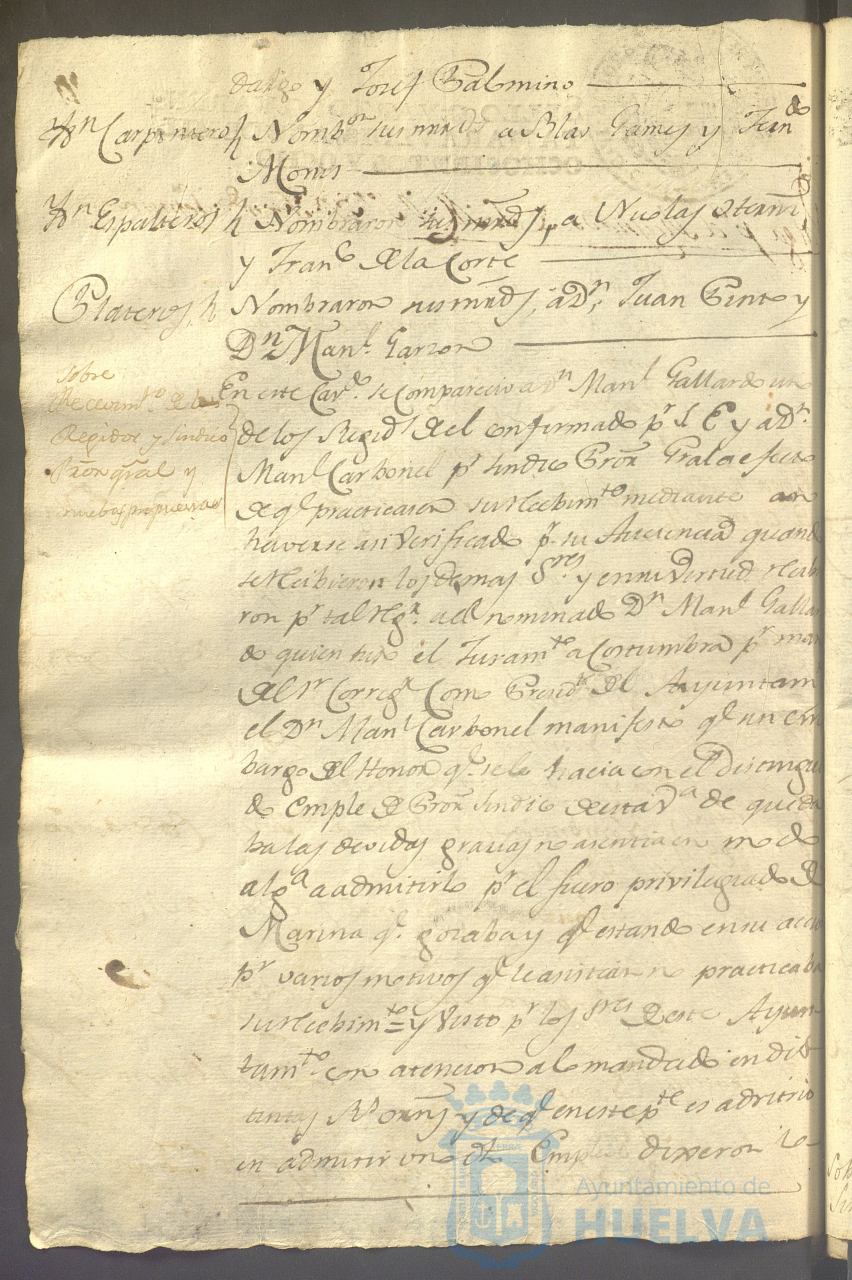 dalgo y Josef Palmino
Yn Carpinteros h Nombron sus mrds a Blas Games y Ferndo
Mones
Yn Espateros h Nombraron sus mrds, a Nicolas
y Franco de la Corte
Plateros, h Nombraron sus mrds, a Dn Juan Pinto y
Dn Manl Garzon
sobre
Recevimto de los
Regidor y Sindico
Pror gral y
nuebas propuestas
En este Cavdo se comparecio a Dn Manl Gallardo uno
de los Regids del confirmado pr S E y a Dn
Manl Carbonel pr sindico Pror Gral a efecto
de q practicasen su recebimto mediante a no
haverse asi verificado pr su Ausencia quando
se recibieron los demas Sres y en su Vertud recibie
ron pr tal regr a el nominado Dn Manl Galla
do quien hizo el Juramto acostumbrado pr mano
del sr Corregr Como Presidte del Ayuntamto
el Dn Manl Carbonel manifesto q sin em
bargo del Honor q se le hacia con el distingui
do Empleo de Pror Sindico de esta Va de que da
ba las devidas gracias no asentia en modo
algo a admitirlo pr el fuero privilegiado de
Marina q gozaba y q estando en su accio
pr varios motivos q le asistian no practicaba
su recebimto = y Visto pr los Sres de este Ayun
tamto con atencion a lo mandado en dis
tintas Rs ordns y de q en este pte es adbitrio
en admitir uno dho Empleo dixeron
Ayuntamiento de
HUELVA